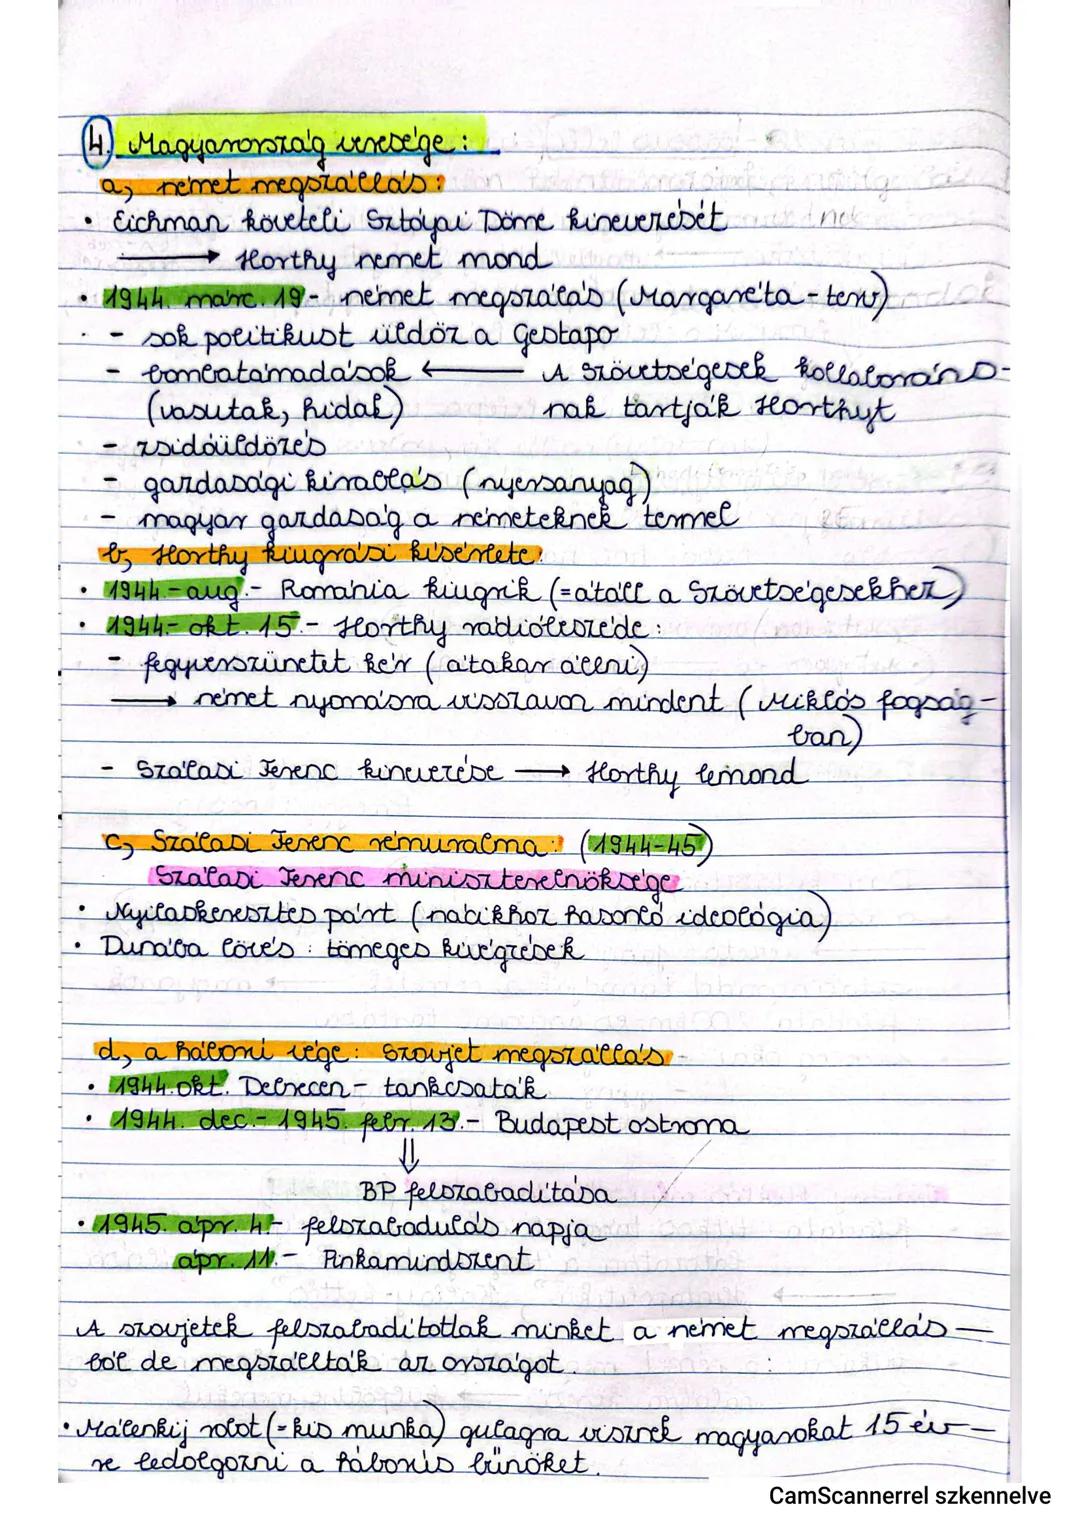 4. Magyarország veresége:
a, német megszállás:
• Eichman követeli Sztójai Döme kinevezését
→ Horthy nemet mond
• 1944. márc. 19- német megszálás (Margaréta-terv)
- sok politikust üldöz a Gestapo
- bombatámadások ← A Szövetségesek kollaboráns-
(vasutak, hidak) nak tartják Horthyt
- zsidóüldözés
- gazdasági kirablás (nyersanyag)
- magyar gazdaság a németeknek termel
b, Horthy kiugrási kisérlete:
• 1944-aug.- Románia kiugrik (=átáll a Szövetségesekhez)
• 1944- okt. 15.- Horthy rádióbeszéde:
- fegyverszünetet kér (átakar állni)
→ német nyomásra visszavon mindent (Miklós fogság-
ban)
- Szálasi Ferenc kinevezése → Horthy lemond
c, Szálasi Ferenc rémuralma: (1944-45)
Szálasi Ferenc miniszterelnöksége
• Nyilaskeresztes párt (nácikhoz hasonló ideológia)
• Dunába lövés: tömeges kivégzések
d, a háború vége: Szovjet megszállás
• 1944.okt. Debrecen- tankcsaták
• 1944. dec.- 1945. febr. 13.- Budapest ostroma
⇓
BP felszabadítása
• 1945. ápr. 4- felszabadulás napja
ápr. 11.- Pinkamindszent
A szovjetek felszabadítottak minket a német megszállás-
ból de megszállták az országot.
• Málenkij robot (=kis munka) gulagra visznek magyarokat 15 év-
re ledolgozni a háborús bűnöket.
CamScannerrel szkennelve